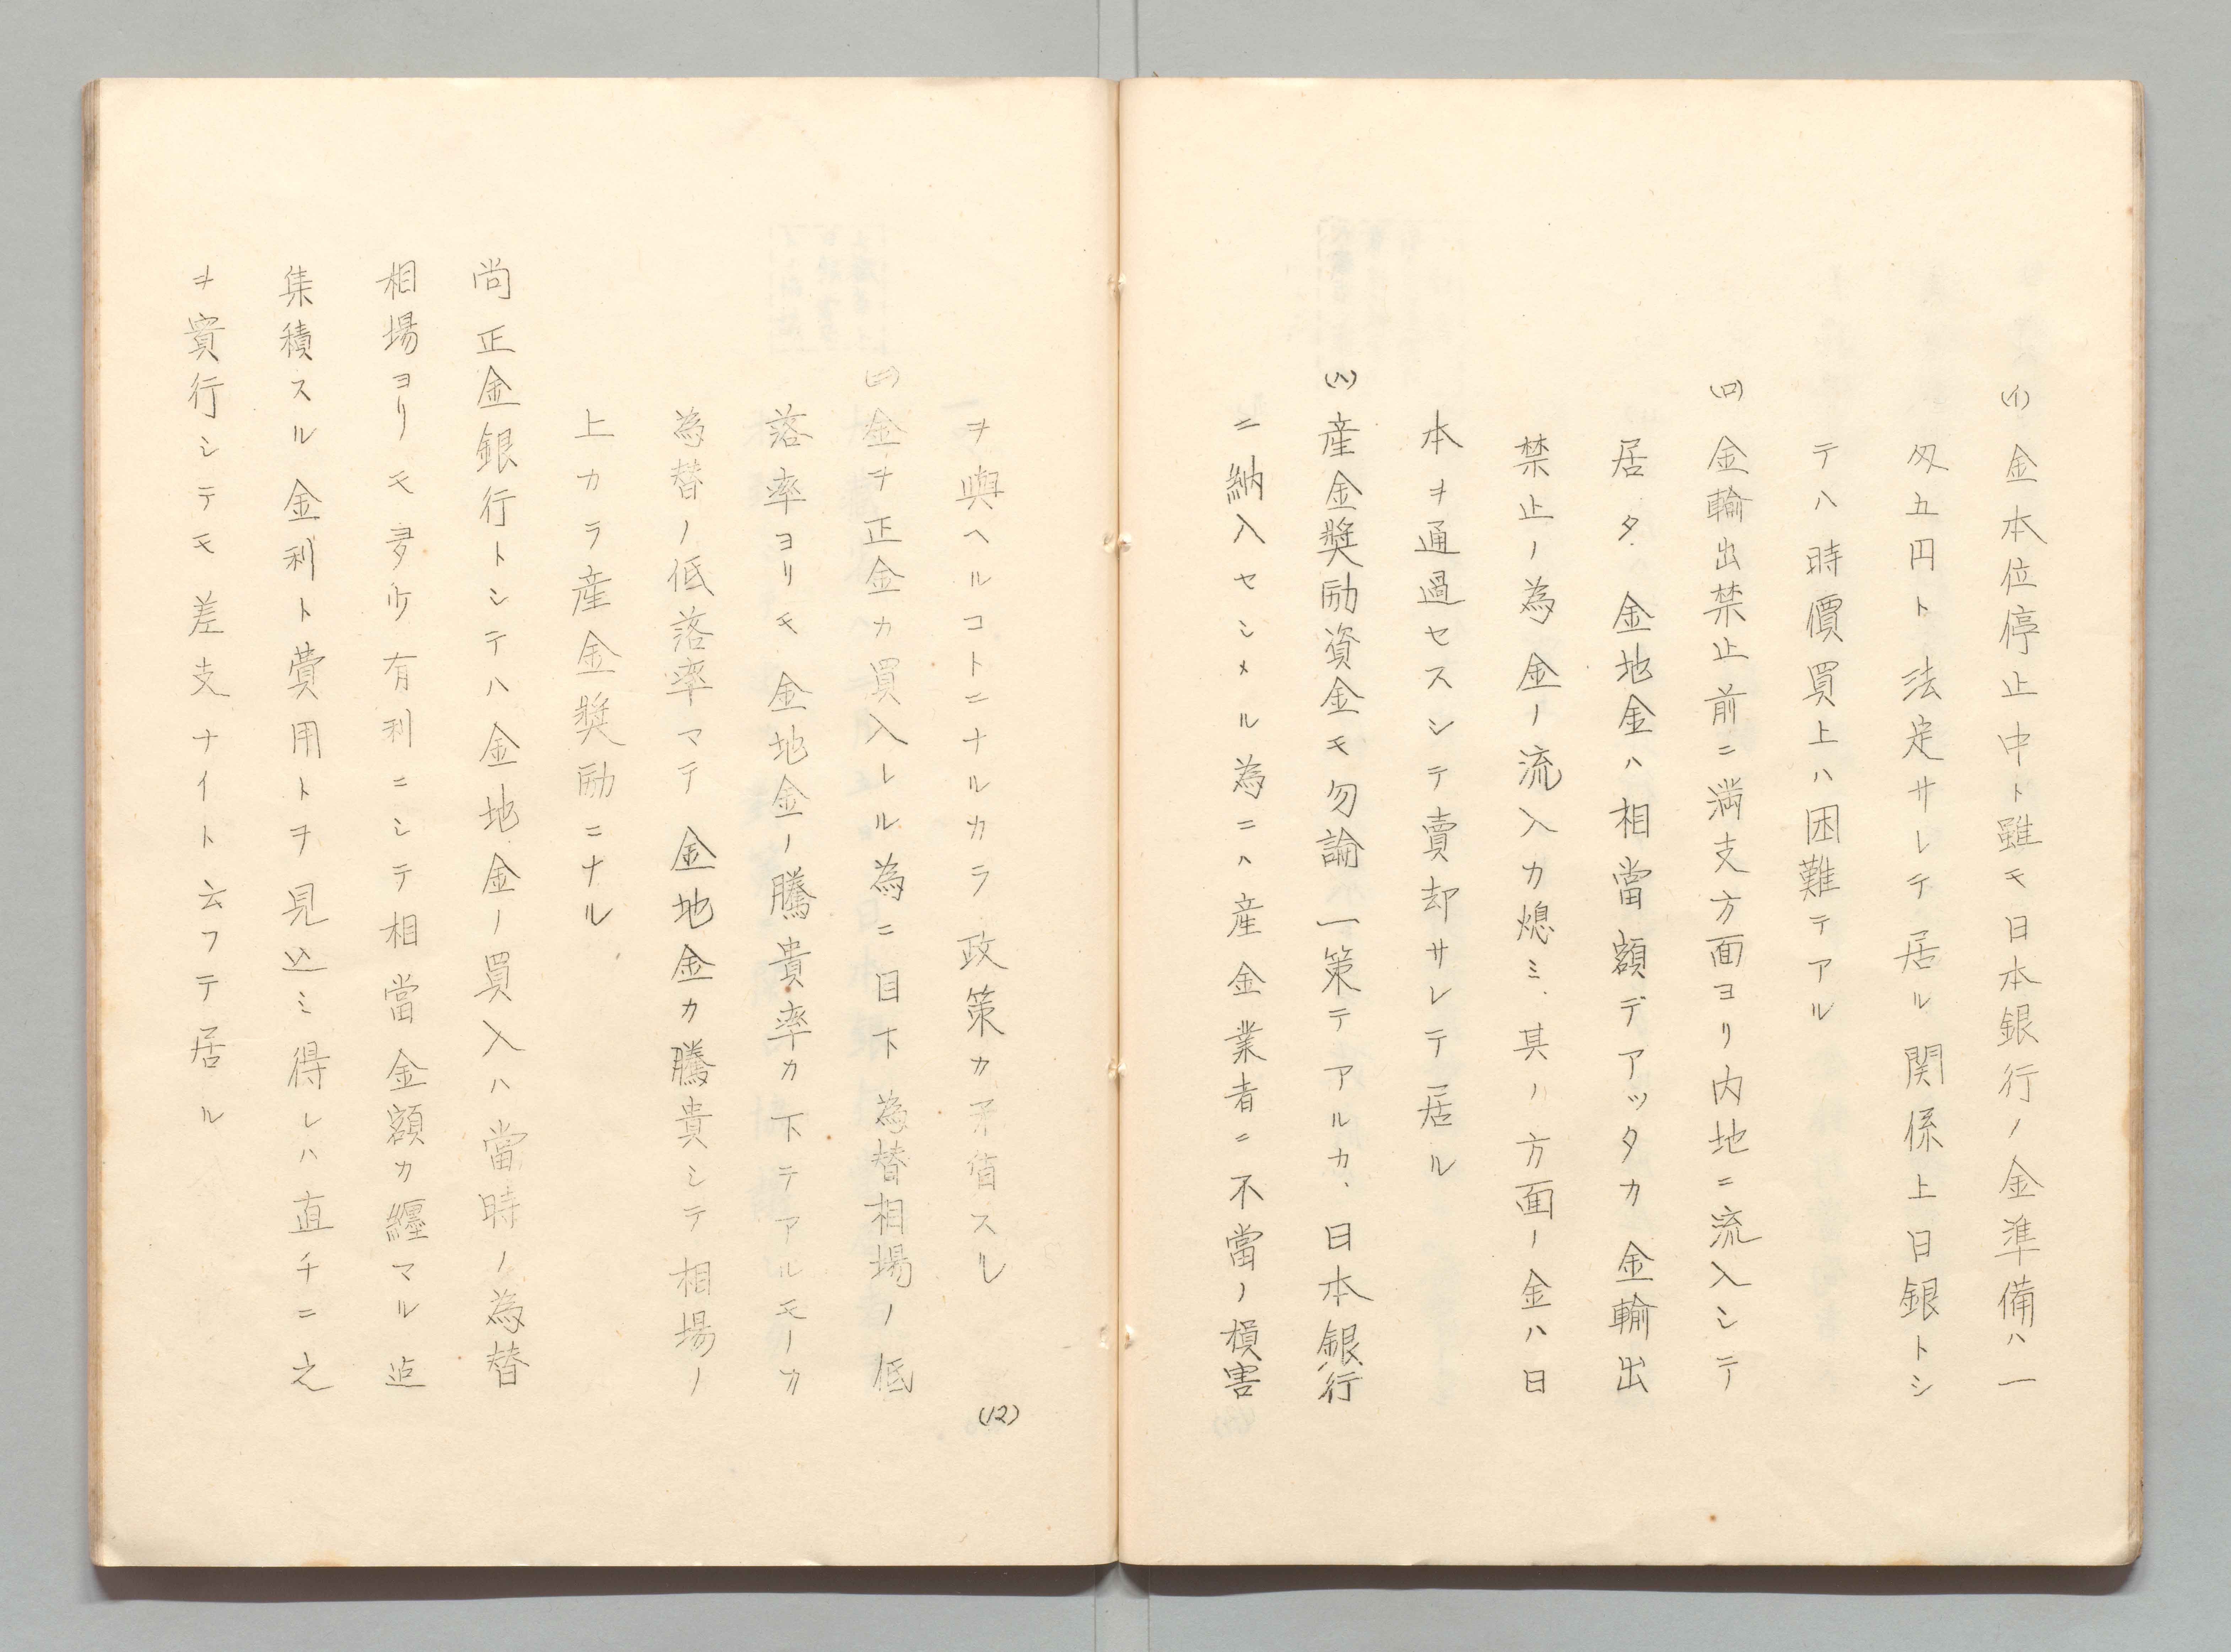 (イ) 金本位停止中ト雖モ日本銀行ノ金準備ハ一
匁五円ト法定サレテ居ル関係上日銀トシ
テハ時價買上ハ困難テアル
(ロ) 金輸出禁止前ニ満支方面ヨリ内地ニ流入シテ
居タ金地金ハ相當額デアッタカ金輸出
禁止ノ為金ノ流入カ熄ミ、其ノ方面ノ金ハ日
本ヲ通過セスシテ賣却サレテ居ル
(ハ) 産金奨励資金モ勿論一策テアルカ、日本銀行
ニ納入セシメル為ニハ産金業者ニ不當ノ損害
ヲ與ヘルコトニナルカラ政策カ矛盾スル
(12)
(ニ) 金ヲ正金カ買入レル為ニ目下為替相場ノ低
落率ヨリモ金地金ノ騰貴率カ下テアルモノカ
為替ノ低落率マテ金地金カ騰貴シテ相場ノ
上カラ産金奨励ニナル
尚正金銀行トシテハ金地金ノ買入ハ當時ノ為替
相場ヨリモ多少有利ニシテ相當金額カ纏マル迠
集積スル金利ト費用トヲ見込ミ得レハ直チニ之
ヲ實行シテモ差支ナイト云フテ居ル